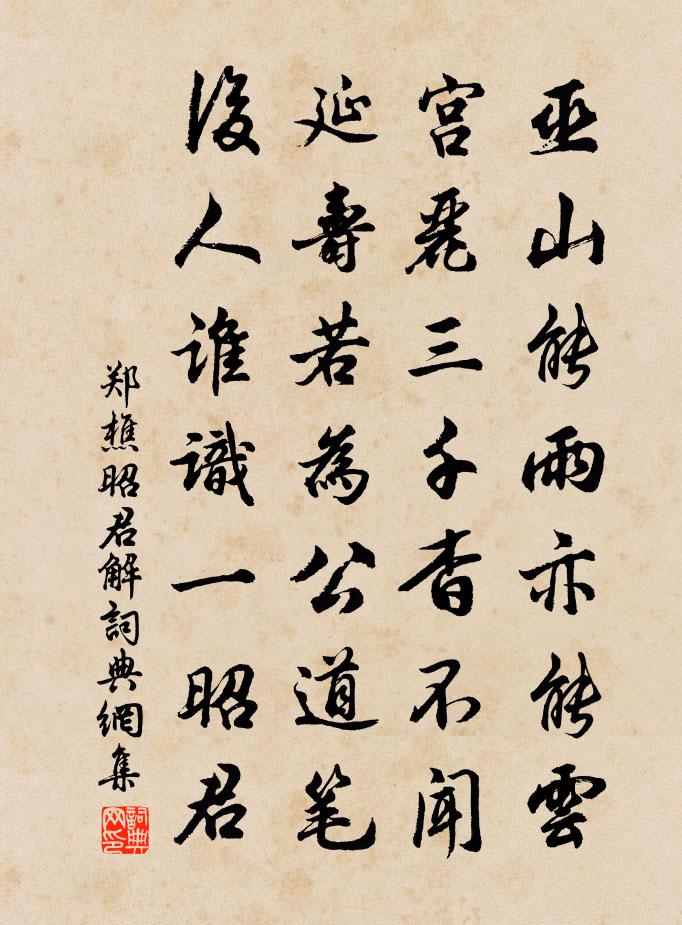 巫山能雨亦能雲
宫麗三千杳不闻
延壽若為公道笔
後人誰識一昭君
郑樵昭君解詞典網集
詞典网印